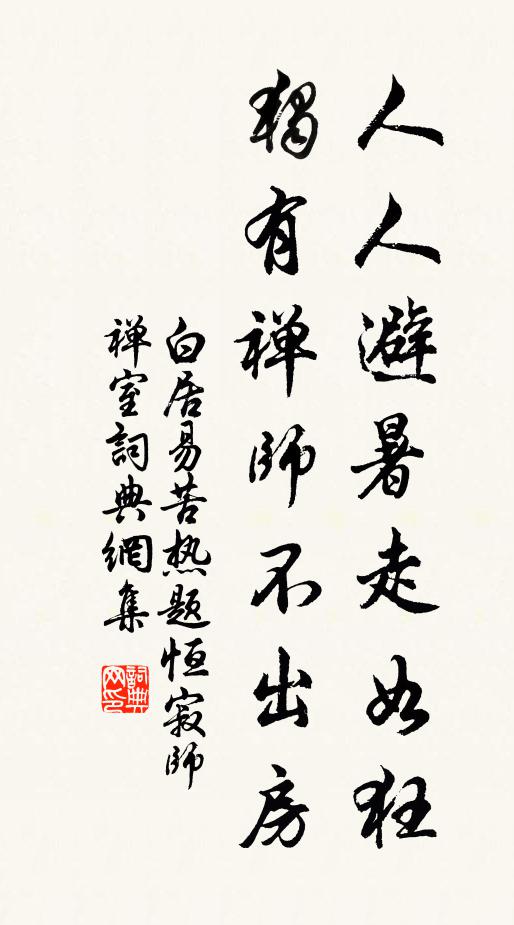 人人避暑走如狂
獨有禅師不出房
白居易苦热题恒寂師
禅室詞典網集
詞典
网印